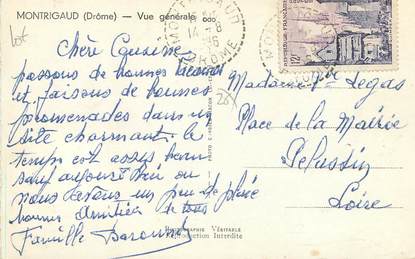 MONTRIGAUD (Drôme) – Vue générale
Lot
MONTRIGAUD
DRÔME
12F
Chère Cousine
passons de bonnes vacances
et faisons de bonnes
promenades dans un
site charmant. le
temps est assez beau
sauf aujourd'hui ou
nous avons un peu de pluie
bonnes Amitiés de tous
Famille
26
Madame Legas
Place de la Mairie
Pelussin
Loire
PHOTOGRAPHIE VÉRITABLE
Reproduction Interdite